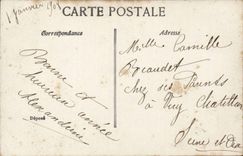 1 janvier 1905
CARTE POSTALE
Correspondance
Adresse
Bonne et
heureuse année
Alexandrine
Déposé
Melle Camille
Bocaudet
chez ses Parents
à Viry Chatillon
Seine et Oise